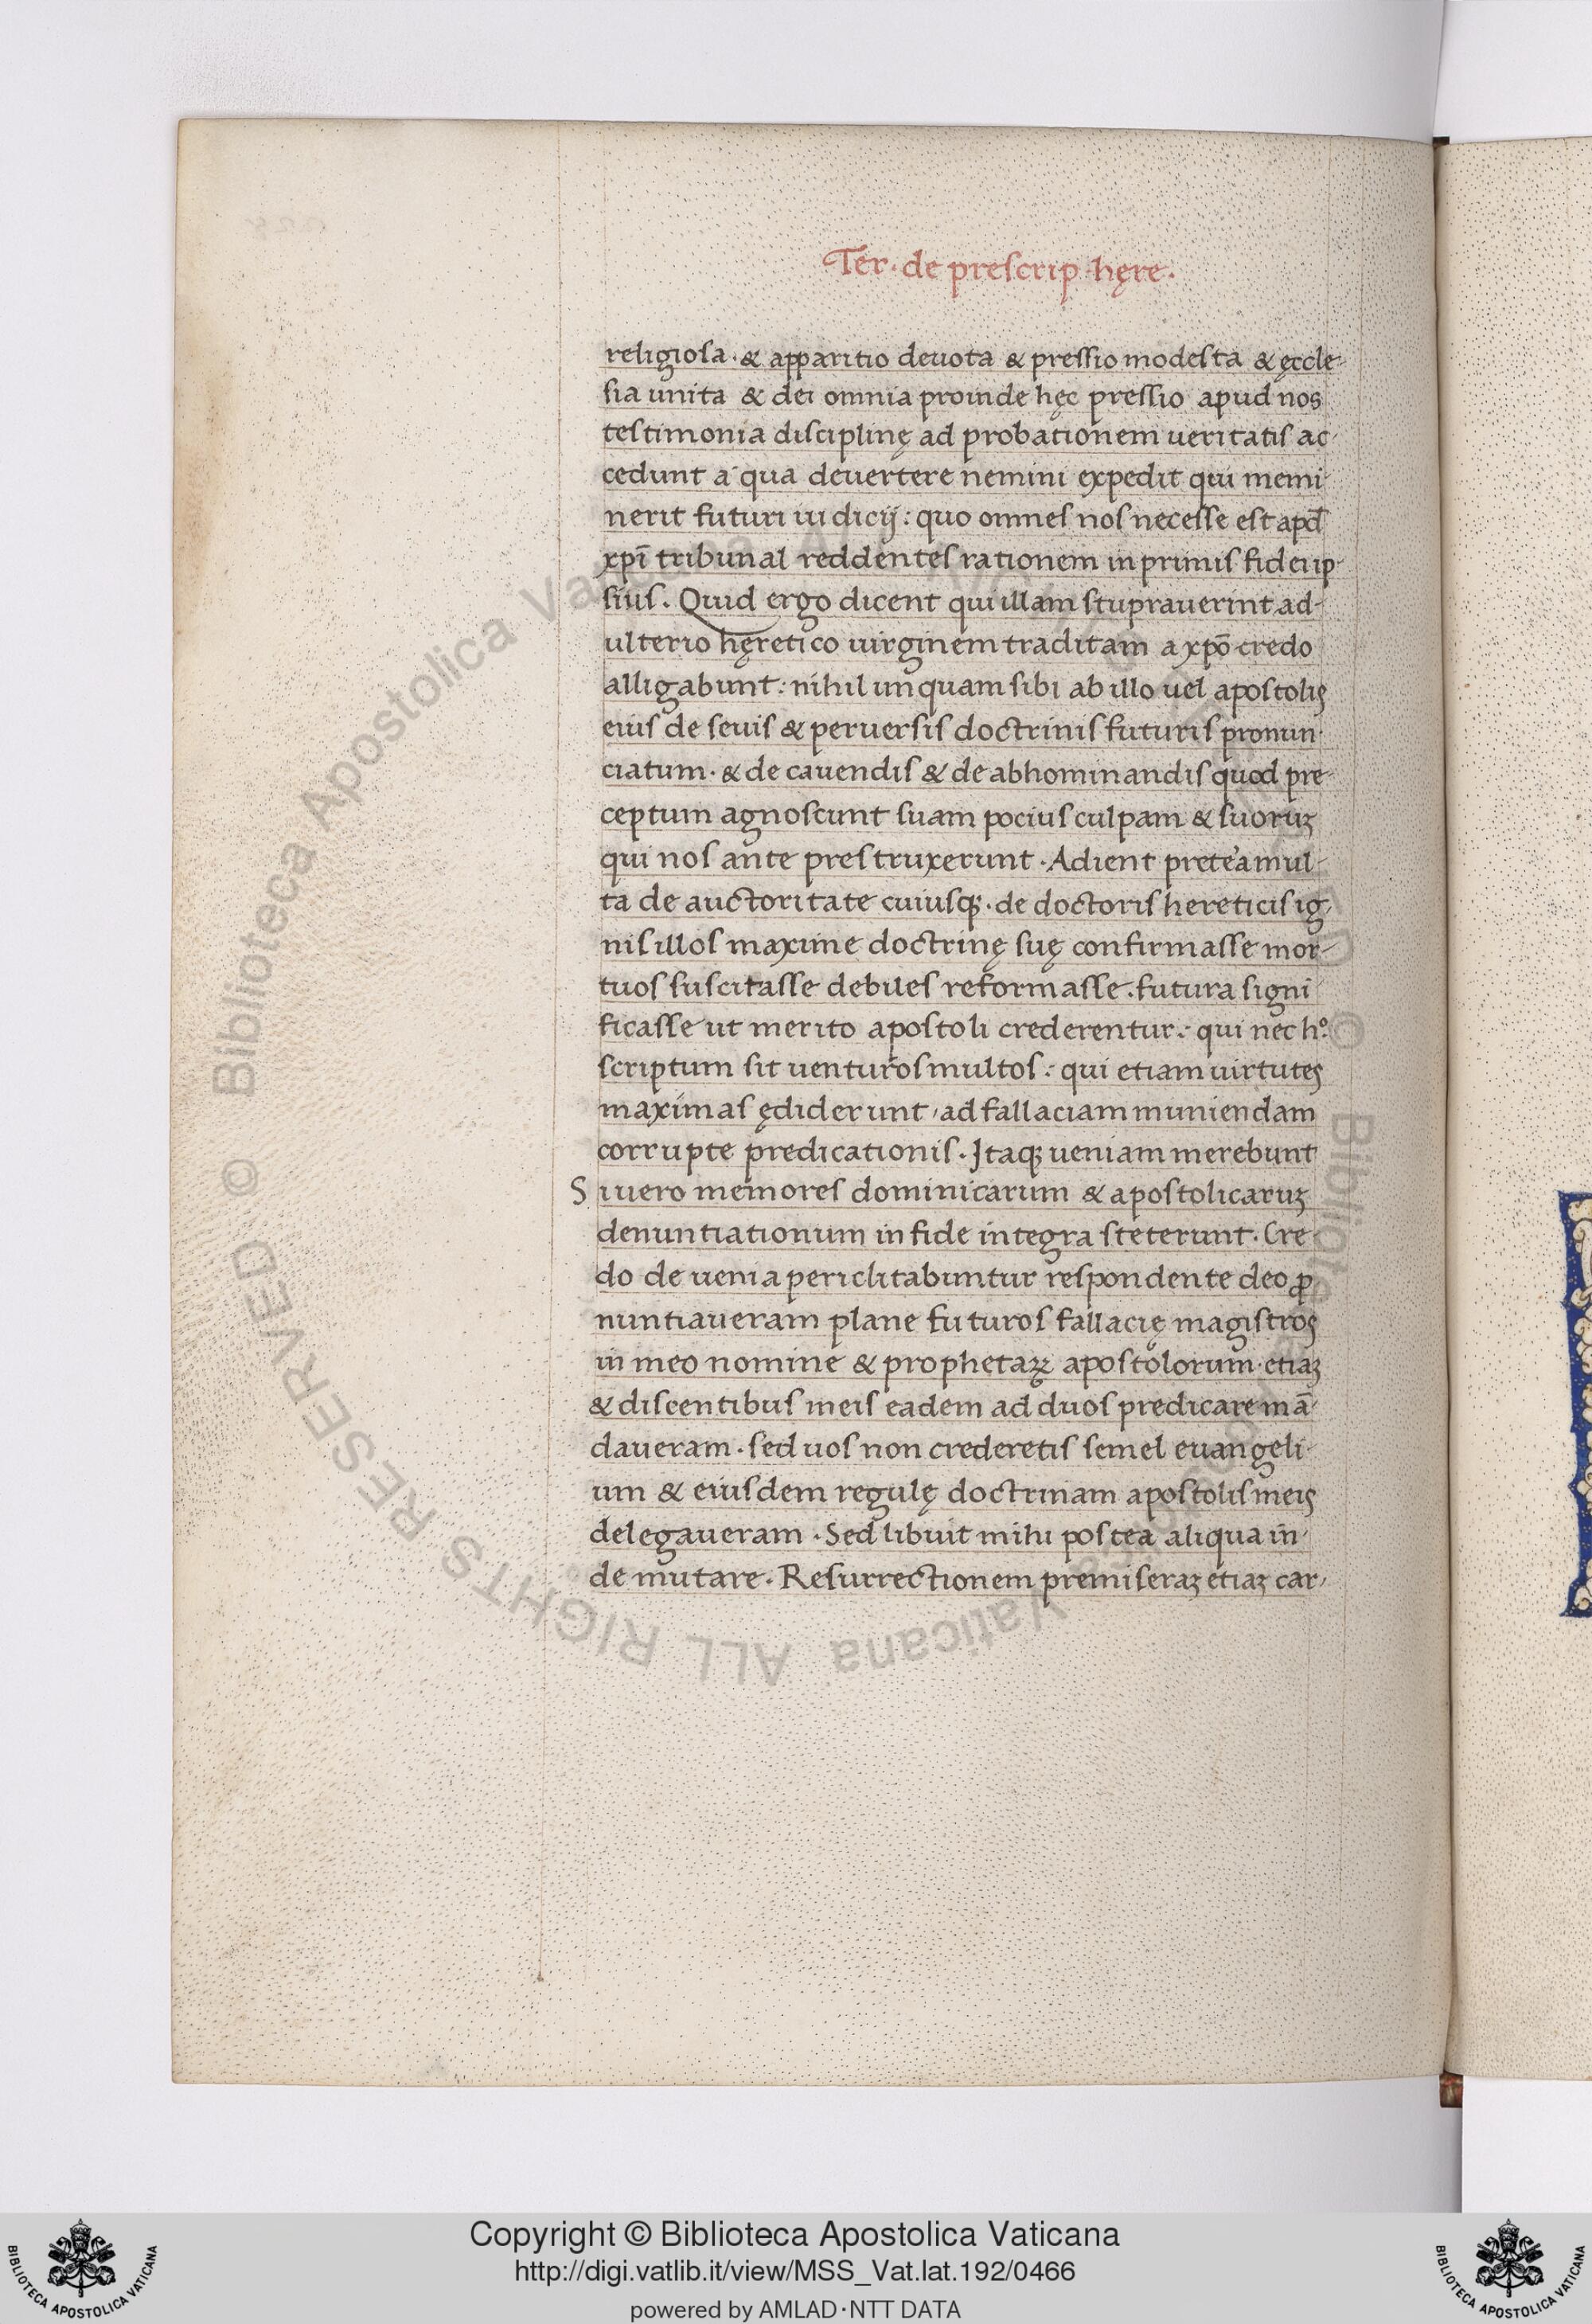 Ter. de prescrip. hęre.
religiosa. & apparitio deuota & pressio modesta & ęccle-
sia unita & dei omnia proinde hęc pressio apud nos
testimonia disciplinę ad probationem ueritatis ac-
cedunt a qua deuertere nemini expedit qui memi-
nerit futuri iudicij: quo omnes nos necesse est apđ
xpī tribunal reddentes rationem inprimis fidei ip-
sius. Quid ergo dicent qui illam stuprauerint ad-
ulterio hęretico uirginem traditam a xpō credo
alligabunt: nihil unquam sibi ab illo uel apostolis
eius de seuis & peruersis doctrinis futuris pronun-
ciatum. & de cauendis & de abhominandis quod pre-
ceptum agnoscunt suam pocius culpam & suoruꝫ
qui nos ante prestruxerunt. Adient prete'a mul-
ta de auctoritate cuiusqꝫ. de doctoris hereticis ig-
nis illos maxime doctrinę suę confirmasse mor-
tuos suscitasse debiles reformasse. futura signi-
ficasse ut merito apostoli crederentur: qui nec hº
scriptum sit uenturos multos: qui etiam uirtutes
maximas ędiderunt, ad fallaciam muniendam
corrupte predicationis. Itaqꝫ ueniam merebunt
S iuero memores dominicarum & apostolicaruꝫ
denuntiationum in fide integra steterunt. Cre
do de uenia periclitabuntur respondente deo ꝓ
nuntiaueram plane futuros fallacię magistros
in meo nomine & prophetaꝝ apostolorum. etiaꝫ
& discentibus meis eadem ad duos predicare mā-
daueram. sed uos non crederetis semel euangeli-
um & eiusdem regulę doctrinam apostolis meis
delegaueram. Sed libuit mihi postea aliqua in-
de mutare. Resurrectionem premiseraꝫ etiaꝫ car-
© Biblioteca Apostolica Vaticana ALL RIGHTS RESERVED © Biblioteca Apostolica Vaticana ALL RIGHTS RESERVED
Copyright © Biblioteca Apostolica Vaticana
http://digi.vatlib.it/view/MSS_Vat.lat.192/0466
powered by AMLAD·NTT DATA
BIBLIOTECA APOSTOLICA VATICANA
BIBLIOTECA APOSTOLICA VATICANA